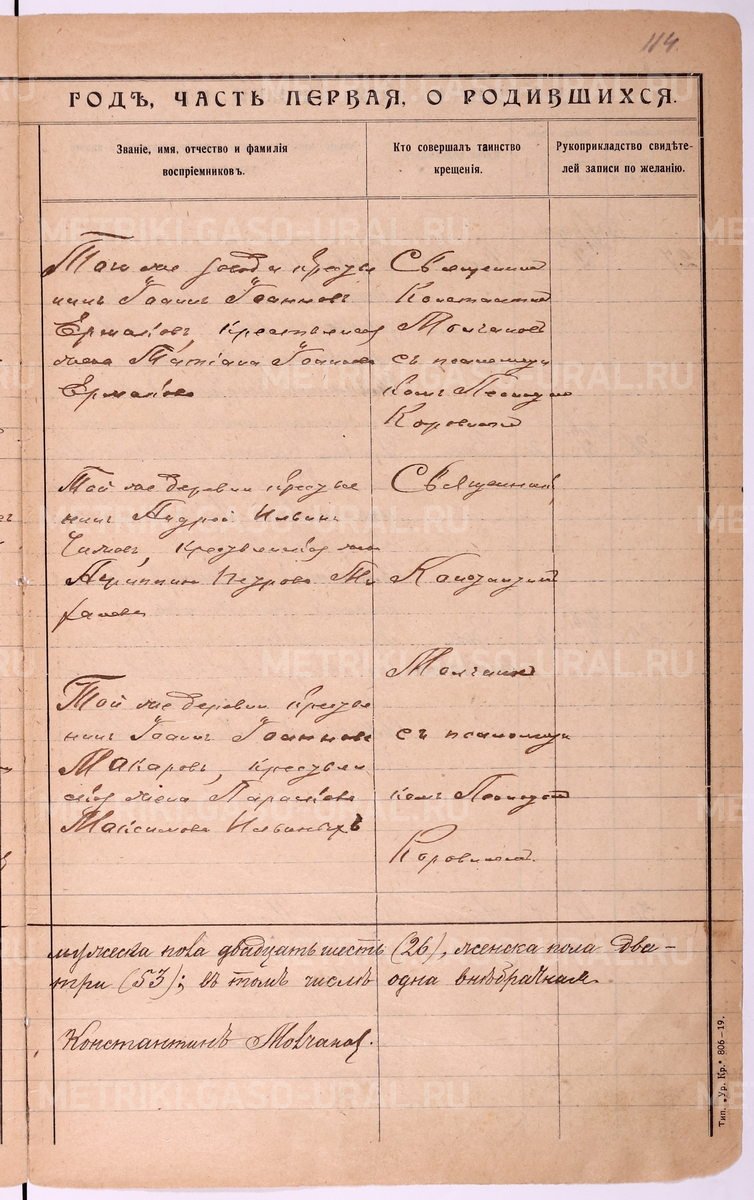 114.
ГОДѢ, ЧАСТЬ ПЕРВАЯ, О РОДИВШИХСЯ.
Званіе, имя, отчество и фамилія
воспріемниковъ.
Кто совершалъ таинство
крещенія.
Рукоприкладство свидѣте-
лей записи по желанію.
Того же крестья
нинъ Іоаннъ Іоанновъ
Ермаковъ, крестьянская
жена Татіана Іоаннова
Ермакова
Священникъ
Константинъ
Молчановъ
съ псаломщи
комъ
Той же деревни крестья
нинъ Андрей Ильинъ
крестьянская жена
Петрова
Священникъ
Константинъ
Молчановъ
съ псаломщи
комъ
Той же деревни крестья
нинъ Іоаннъ Іоанновъ
Макаровъ, крестьян
ская жена Параскева
Максимова Ильиныхъ
мужеска пола двадцать шесть (26), женска пола два-
три (53); въ томъ числѣ одна внѣбрачная.
Константинъ Молчановъ.
Тип. „Ур. Кр.“ 806—19.
METRIKI.GASO-URAL.RU